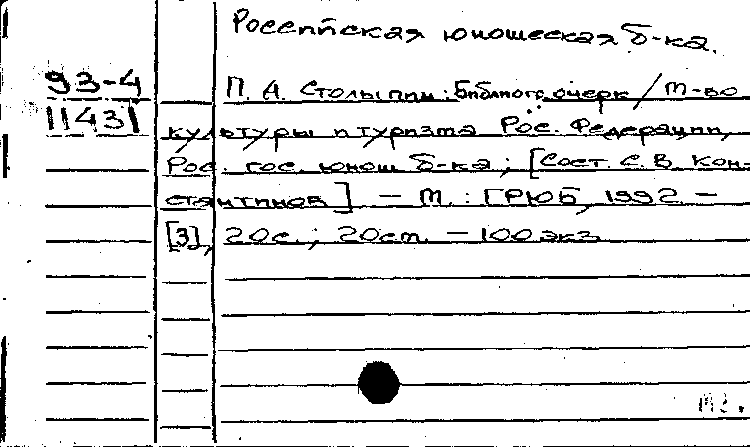 Российская юношеская б-ка.
93-4
11431
П. А. Столыпин: Библиогр. очерк / М-во
культуры и туризма Рос. Федерации,
Рос. гос. юнош б-ка; [Сост. С. В. Кон-
стантинов] — М.: ГРЮБ, 1992. —
[3], 20с.; 20см. — 100 экз.